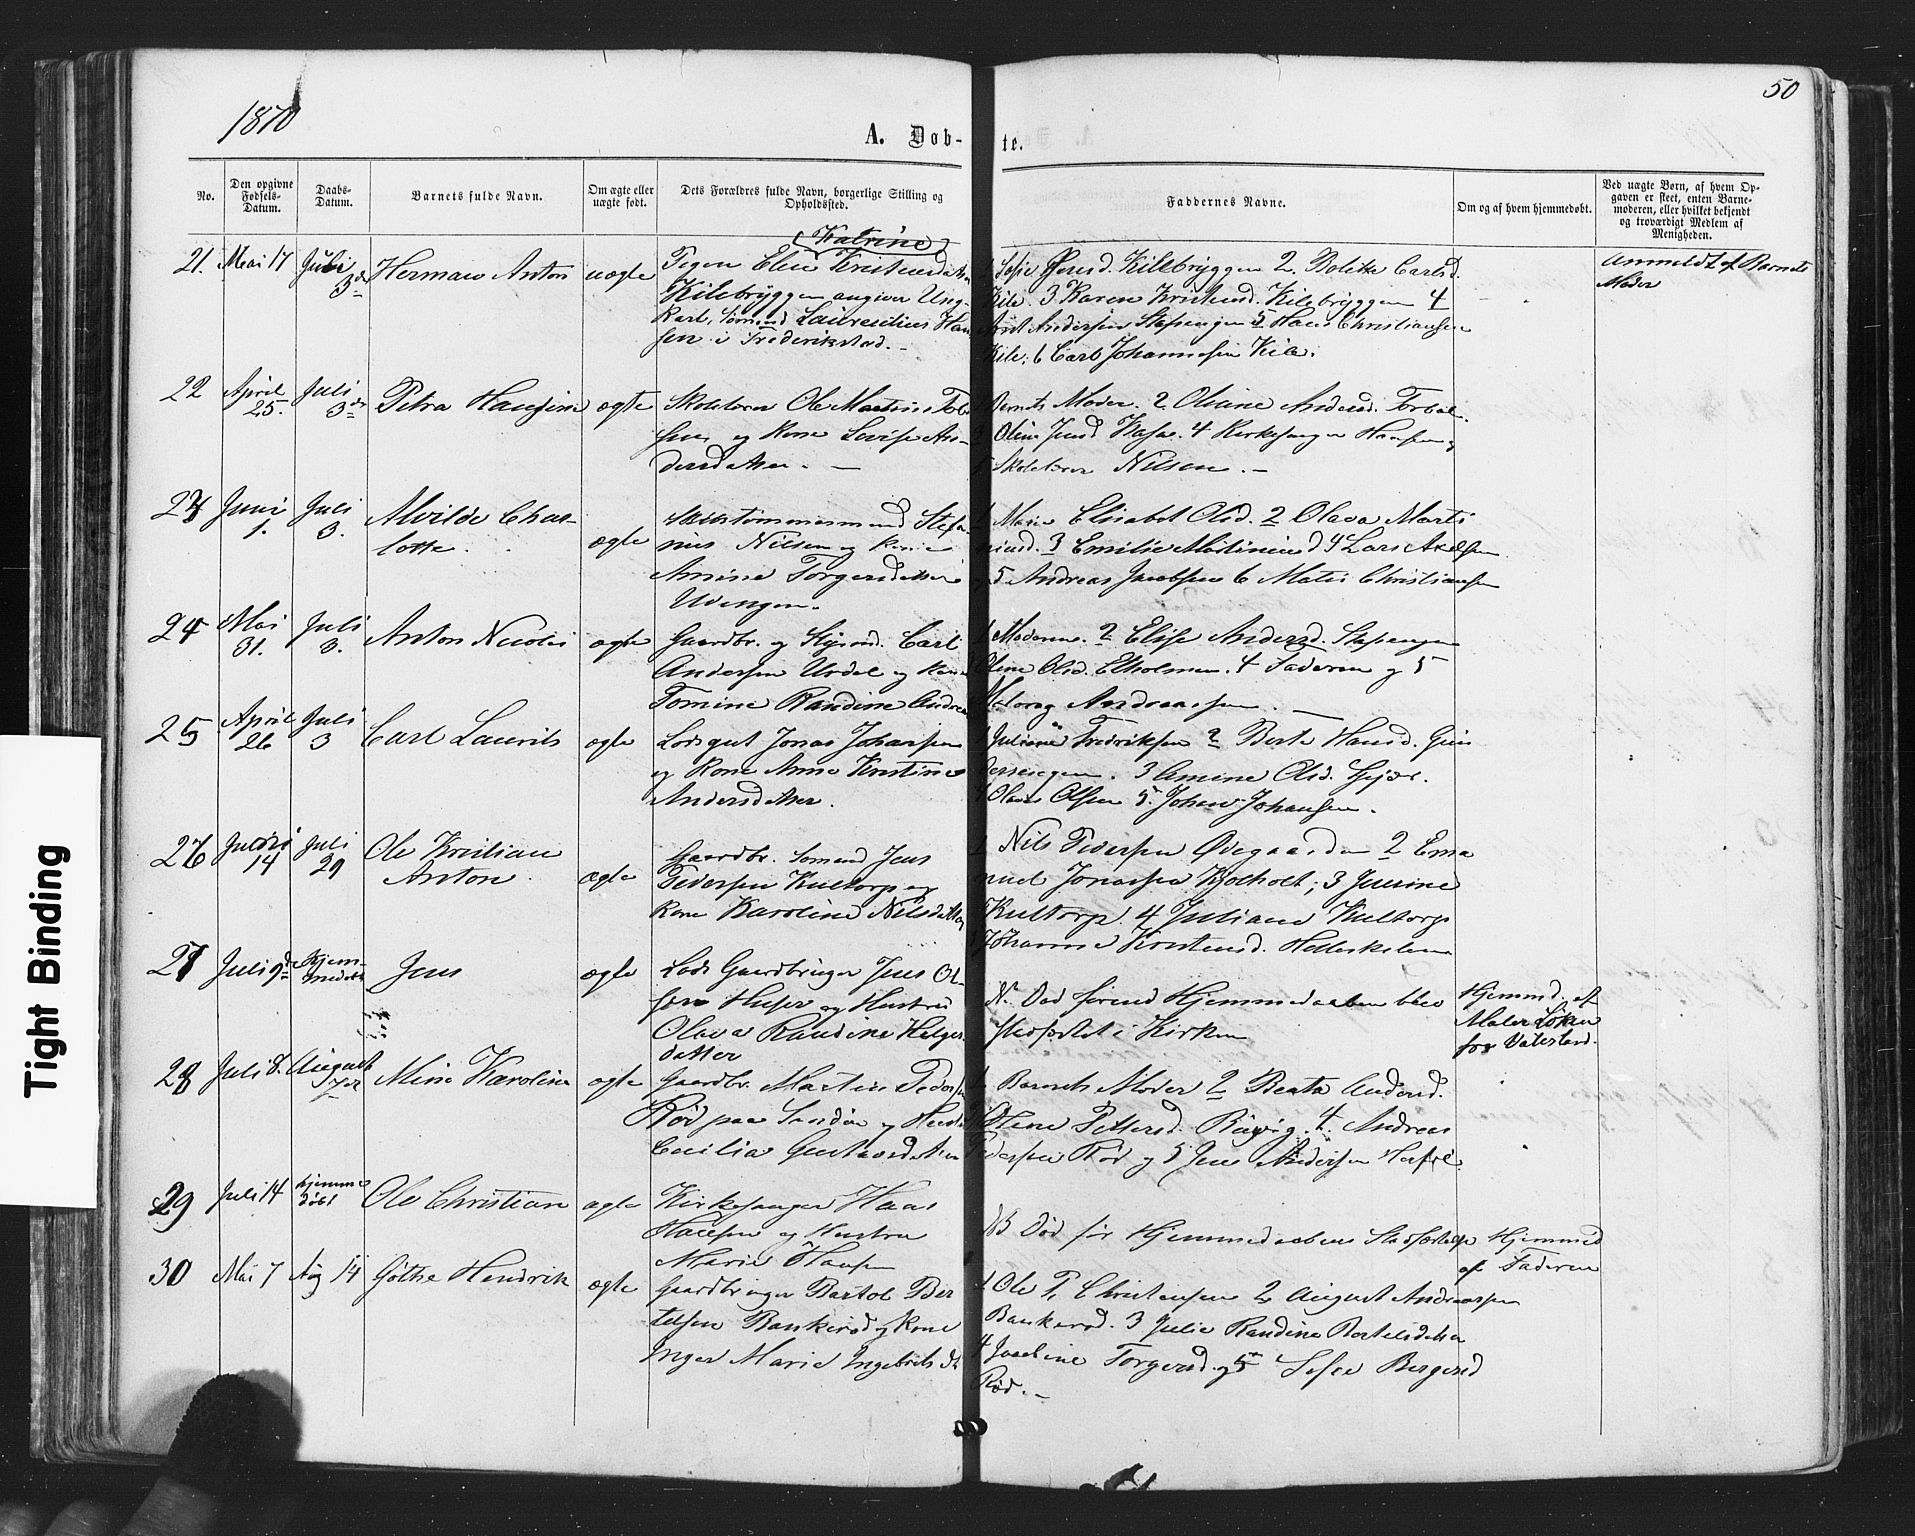 1870
50
A. Døb-
te.
No.
Den opgivne Fødsels-Datum.
Daabs-Datum.
Barnets fulde Navn.
Om ægte eller uægte født.
Dets Forældres fulde Navn, borgerlige Stilling og Opholdssted.
Faddernes Navne.
Om og af hvem hjemmedøbt.
Ved uægte Børn, af hvem Opgaven er skeet, enten Barnemoderen, eller hvilket bekjendt og troværdigt Medlem af Menigheden.
21. Mai 17 Juli 3de Herman Anton uægte
(Katrine)
Pigen Elen Kristensdatter
Kilebryggen angiver Ung-
karl, Sømand Laurentius Han-
sen i Frederikstad.
1 Sofie Kilebryggen 2. Bolette Carlsd.
Kile. 3 Karen Kristensd. Kilebryggen 4
Andersen Stapengen 5 Hans Christiansen
Kile; 6 Carl Johannesen Kile.
Anmeldt af Barnets
Moder
22 April 25. Juli 3de Petra Hansine ægte
Skolelærer Ole Martinus
og Kone Lovise An-
dersdatter. —
Barnets Moder. 2. Oliane Andersd.
3 Oline Jensd 4 Kirkesanger Hansen og
5 Skolelærer Nilsen. —
23 Juni 1. Juli 3. Alvilde Char-
lotte. ægte
Skibstømmermand Stefa-
nus Nilsen og Kone
Amine Torgersdatter
Udengen.
1 Marie Elisabet Olsd. 2 Olava Marti
niusd. 3 Emilie 4 Lars Axelsen
5 Andreas Jacobsen 6 Christiansen
24 Mai 31. Juli 3. Anton Nicolai ægte
Gaardbr. og Carl
Andersen og Kone
Tomine Randine
1 Moderen. 2 Elise Andersd. Stapengen
Oline Olsd. Elholmen. 4 Faderen og 5
Andreassen. —
25 April 26 Juli 3 Carl Laurits ægte
Lodsgut Jonas Johansen
og Kone Anne Kristine
Andersdatter.
1 Juliane Fredriksen 2 Berte Hansd.
3 Amine Olsd.
4 Olaus Olsen 5. Johan Johansen.
26 Juni 14 Juli 29 Ole Kristian
Anton. ægte
Gaardbr. Sømand Jens
Pedersen Kultorp og
Kone Karoline Nilsdatter
1 Nils Pedersen Ødegaarden 2 Ema
nuel Jonassen Kjølholt; 3
Kultorp. 4 Juliane Kultorp
Johanne Kristensd.
27 Juli 9de Hjem-
medøbt Jens ægte
Lods Gaardbruger Jens Ol-
sen og Hustru
Olava Randine Helges
datter
N. Død førend Hjemmedaaben blev
stadfæstet i Kirken
Hjemmd. af
Maler Løken
fra Vatteland.
28 Juli 8. August 7de Mina Karoline ægte
Gaardbr. Martin Pedersen
Rød paa Sandøen og Hustru
Cecilia Gustavsdatter
1 Barnets Moder 2 Beata Andersd.
Olene Pettersd. 4. Andreas
Pedersen Rød og 5 Jens Andersen
29 Juli 14 hjemme
døbt Ole Christian ægte
Kirkesanger Haas
Hansen og Hustru
Marie Hansen
NB Død før Hjemmedaabens Stadfæstelse
Hjemmed
af Faderen
30 Mai 7 Aug 14 Gothe Hendrik ægte
Gaardbruger Bartol Ber
telsen Bankerød og Kone
Inger Marie Ingebrets dt
1 Ole P. Christensen 2 August Andreassen
Bankerød. 3 Julie Randine Bertelsdatter
4 Josefine Torgersd. og 5 Sofie Bergersd
Rød. —
Tight Binding